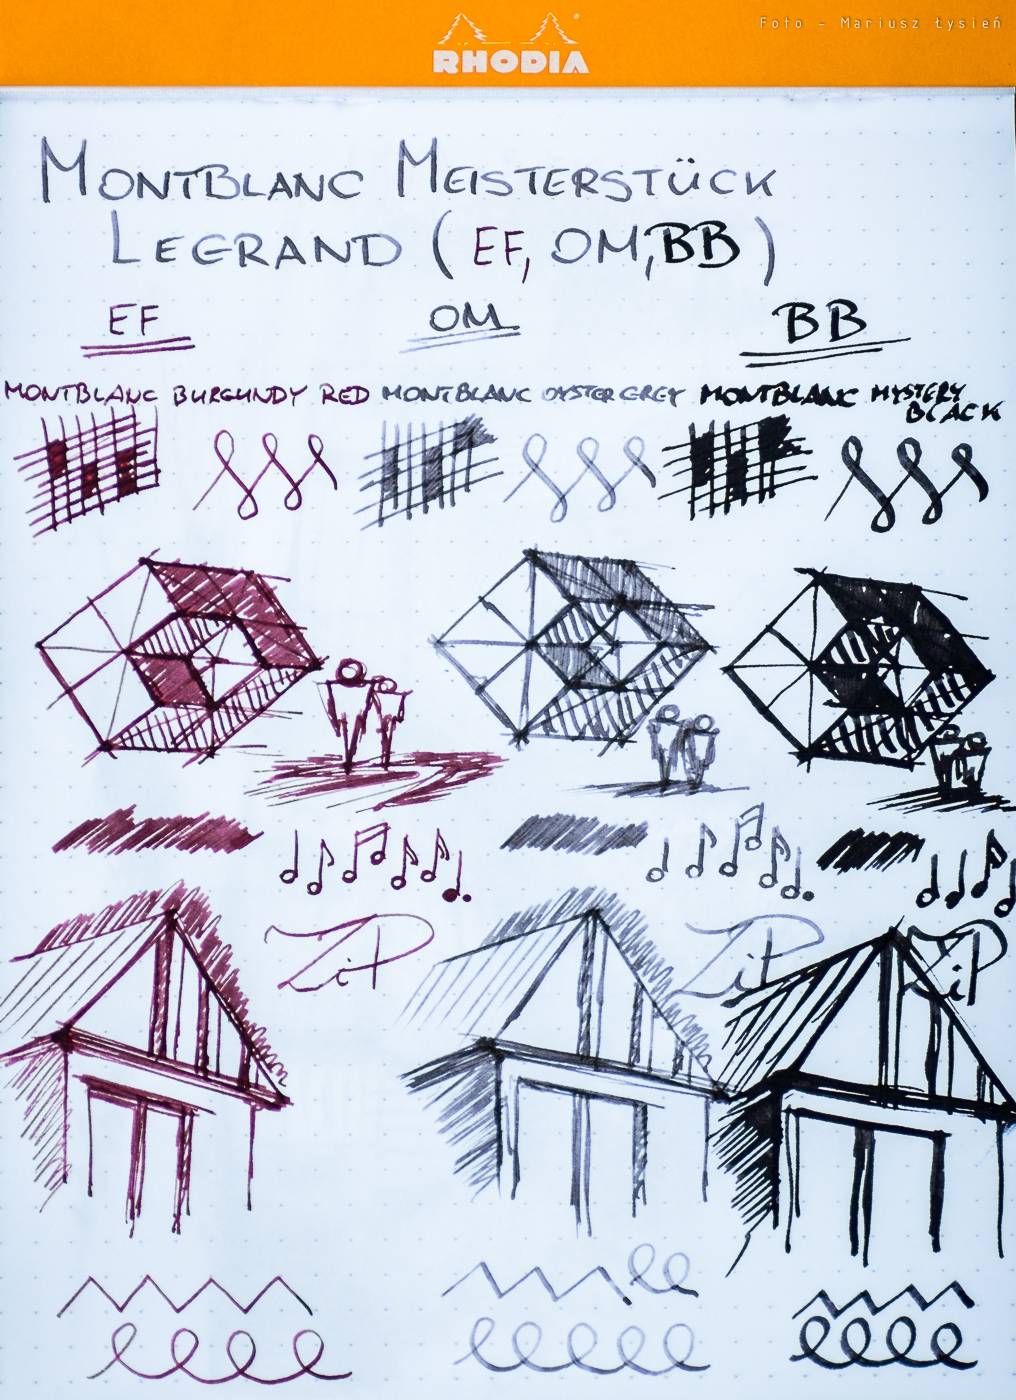 Foto - Mariusz Łysień
RHODIA
MONTBLANC MEISTERSTÜCK
LEGRAND (EF, OM, BB)
EF OM BB
MONTBLANC BURGUNDY RED MONTBLANC OYSTER GREY MONTBLANC MYSTERY
BLACK
ZiP ZiP ZiP